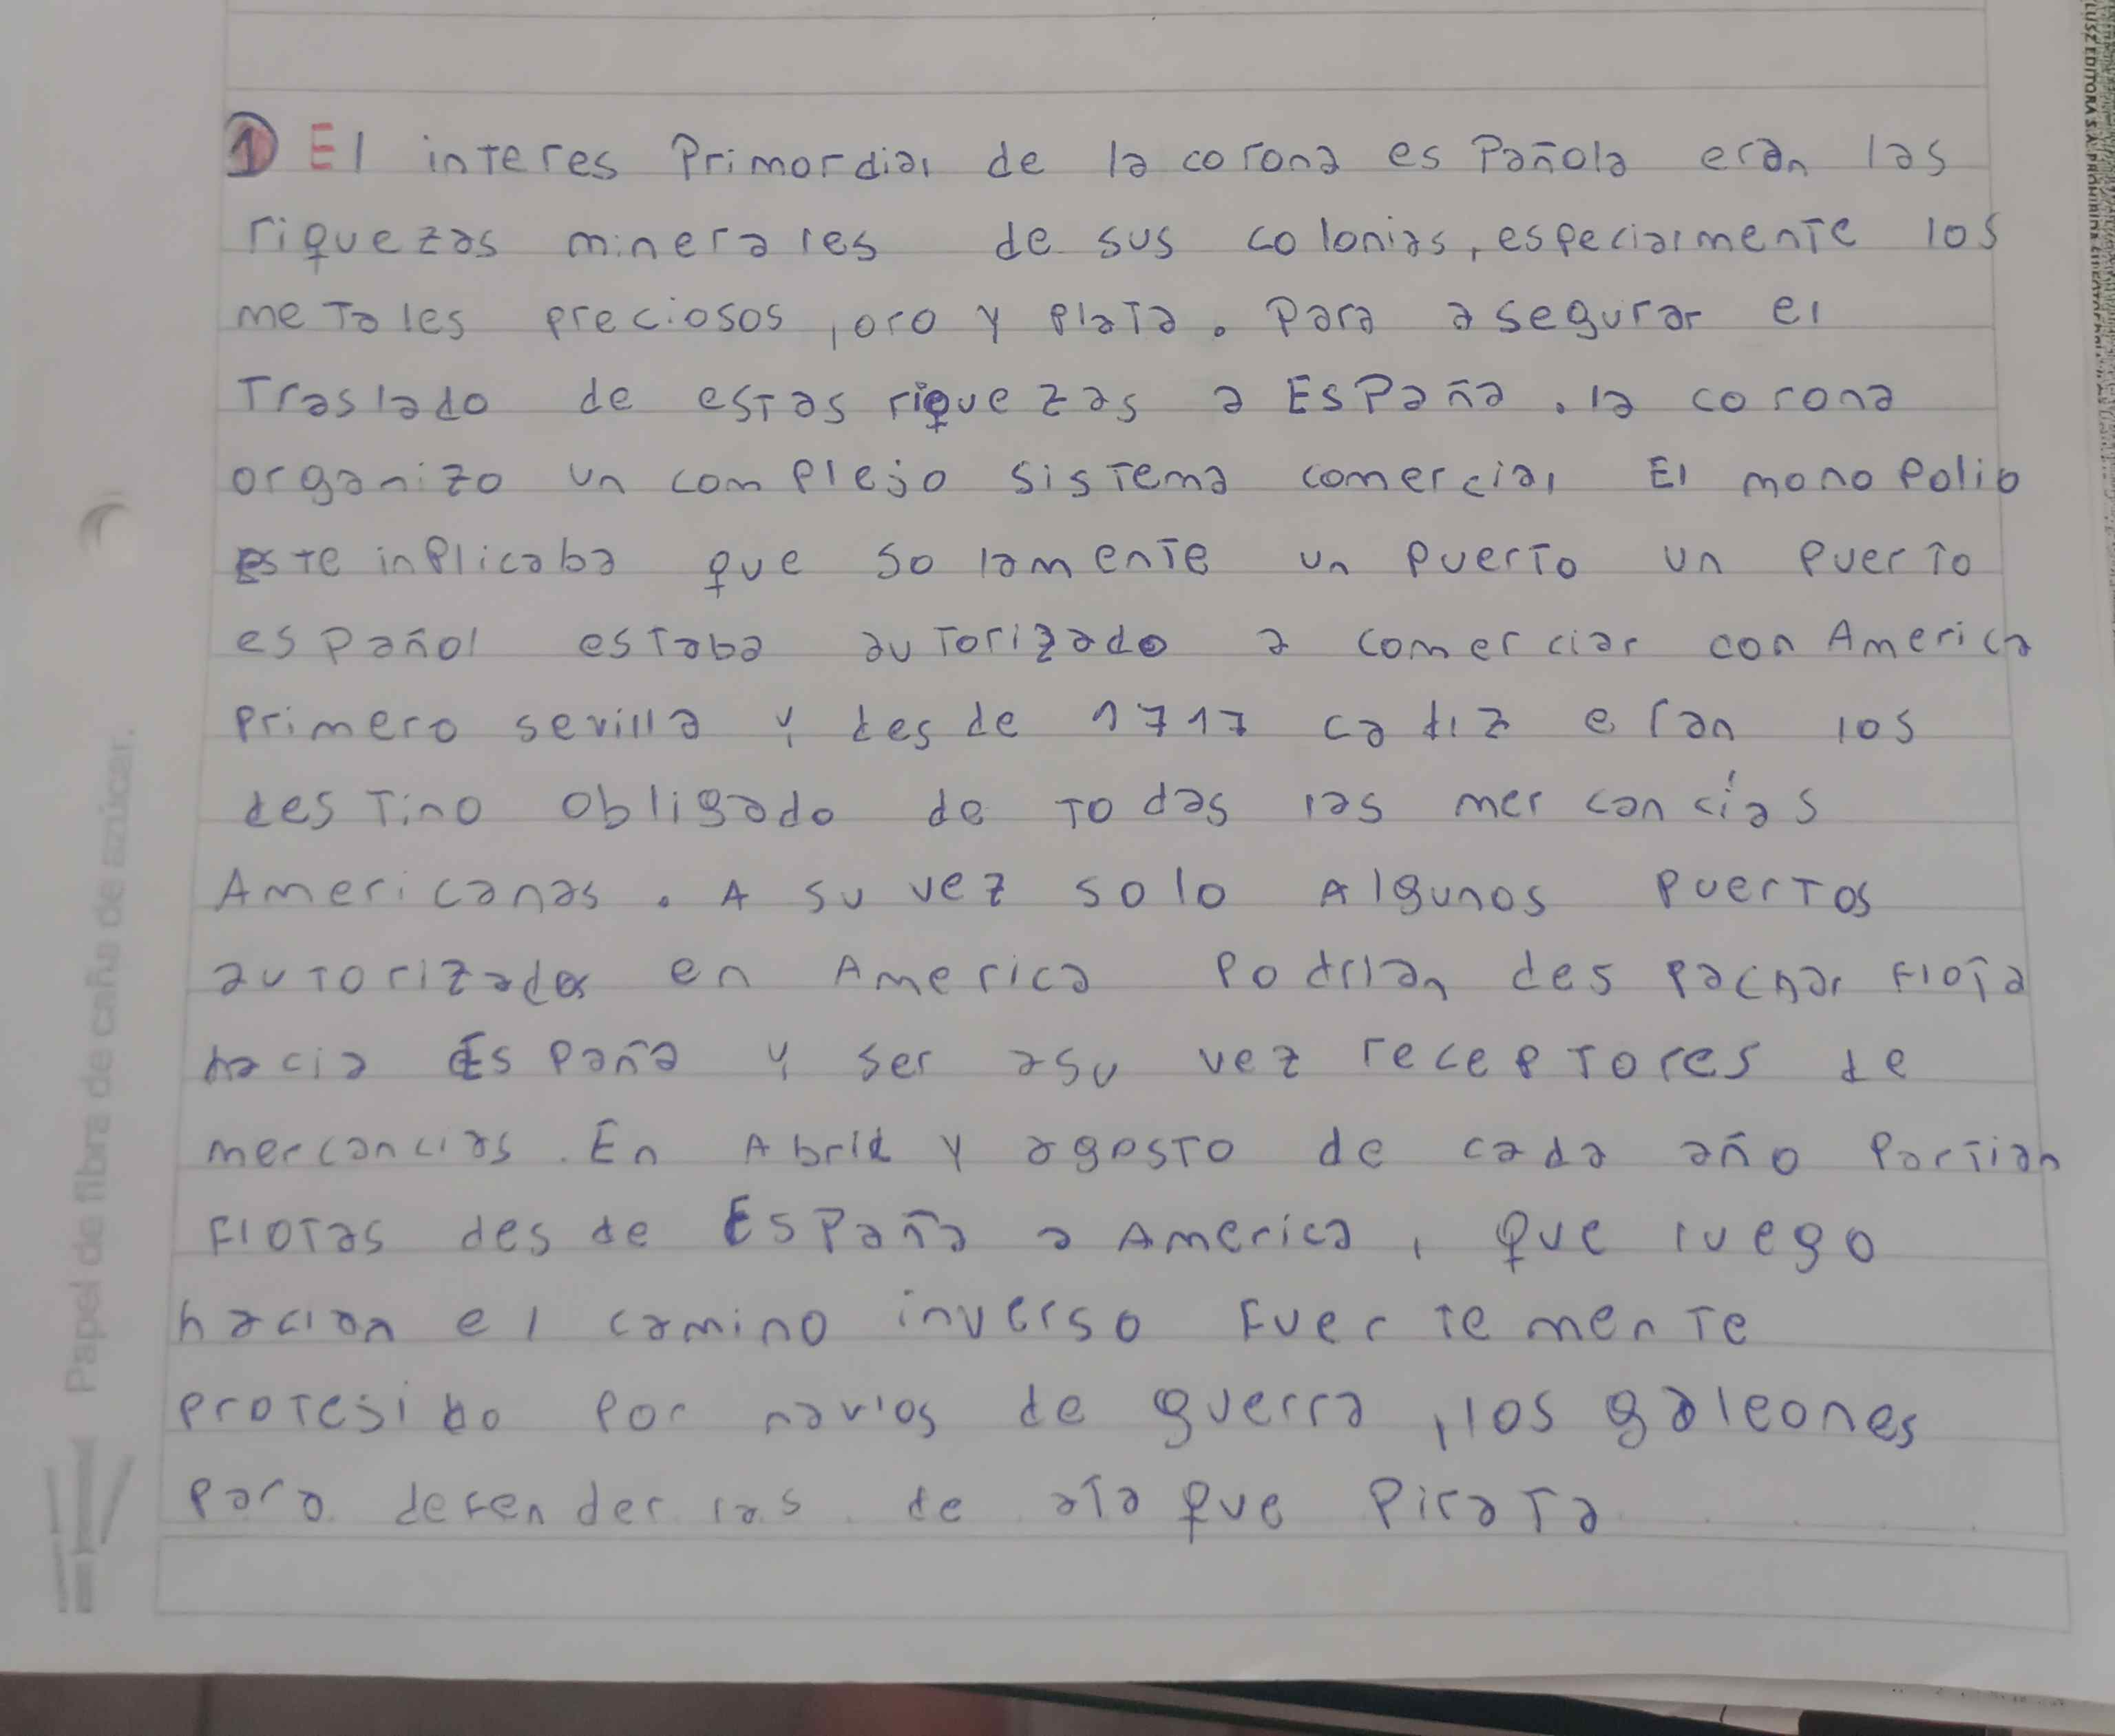 1 El interes Primordial de la corona es Pañola eran las
riquezas minerales de sus colonias, especialmente los
metales preciosos, oro y plata. Para asegurar el
Traslado de estas riquezas a ESPaña. la corona
organizo un complejo sistema comercial El monopolio
este inplicaba que solamente un puerto un puerto
español estaba autorizado a comerciar con America
primero sevilla y desde 1717 cadiz eran los
destino obligado de todas las mercancías
Americanas. A su vez solo Algunos puertos
autorizados en America podrian despachar flota
hacia España y ser asu vez receptores de
mercancias. En Abril y agosto de cada año partian
flotas desde España a America, que luego
hacian el camino inverso fuertemente
protejido por navios de guerra, los galeones
para defenderlas de ataque Pirata
Papel de fibra de caña de azúcar.